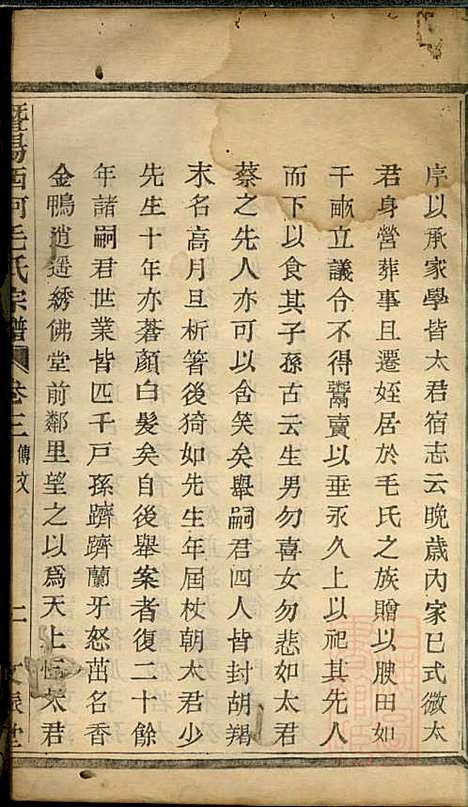 序以承家學皆太君宿志云晚歲內家已式微太
君身營葬事且遷姪居於毛氏之族贈以腴田如
干畝立議令不得鬻賣以垂永久上以祀其先人
而下以食其子孫古云生男勿喜女勿悲如太君
蔡之先人亦可以含笑矣舉嗣君四人皆封胡羯
末名高月旦析箸後猗如先生年屆杖朝太君少
先生十年亦蒼顏白髮矣自後舉案者復二十餘
年諸嗣君世業皆匹千戶孫躋躋蘭牙怒茁名香
金鴨逍遥綉佛堂前鄰里望之以爲天上太君
暨陽西河毛氏宗譜 卷三 傳文 堂